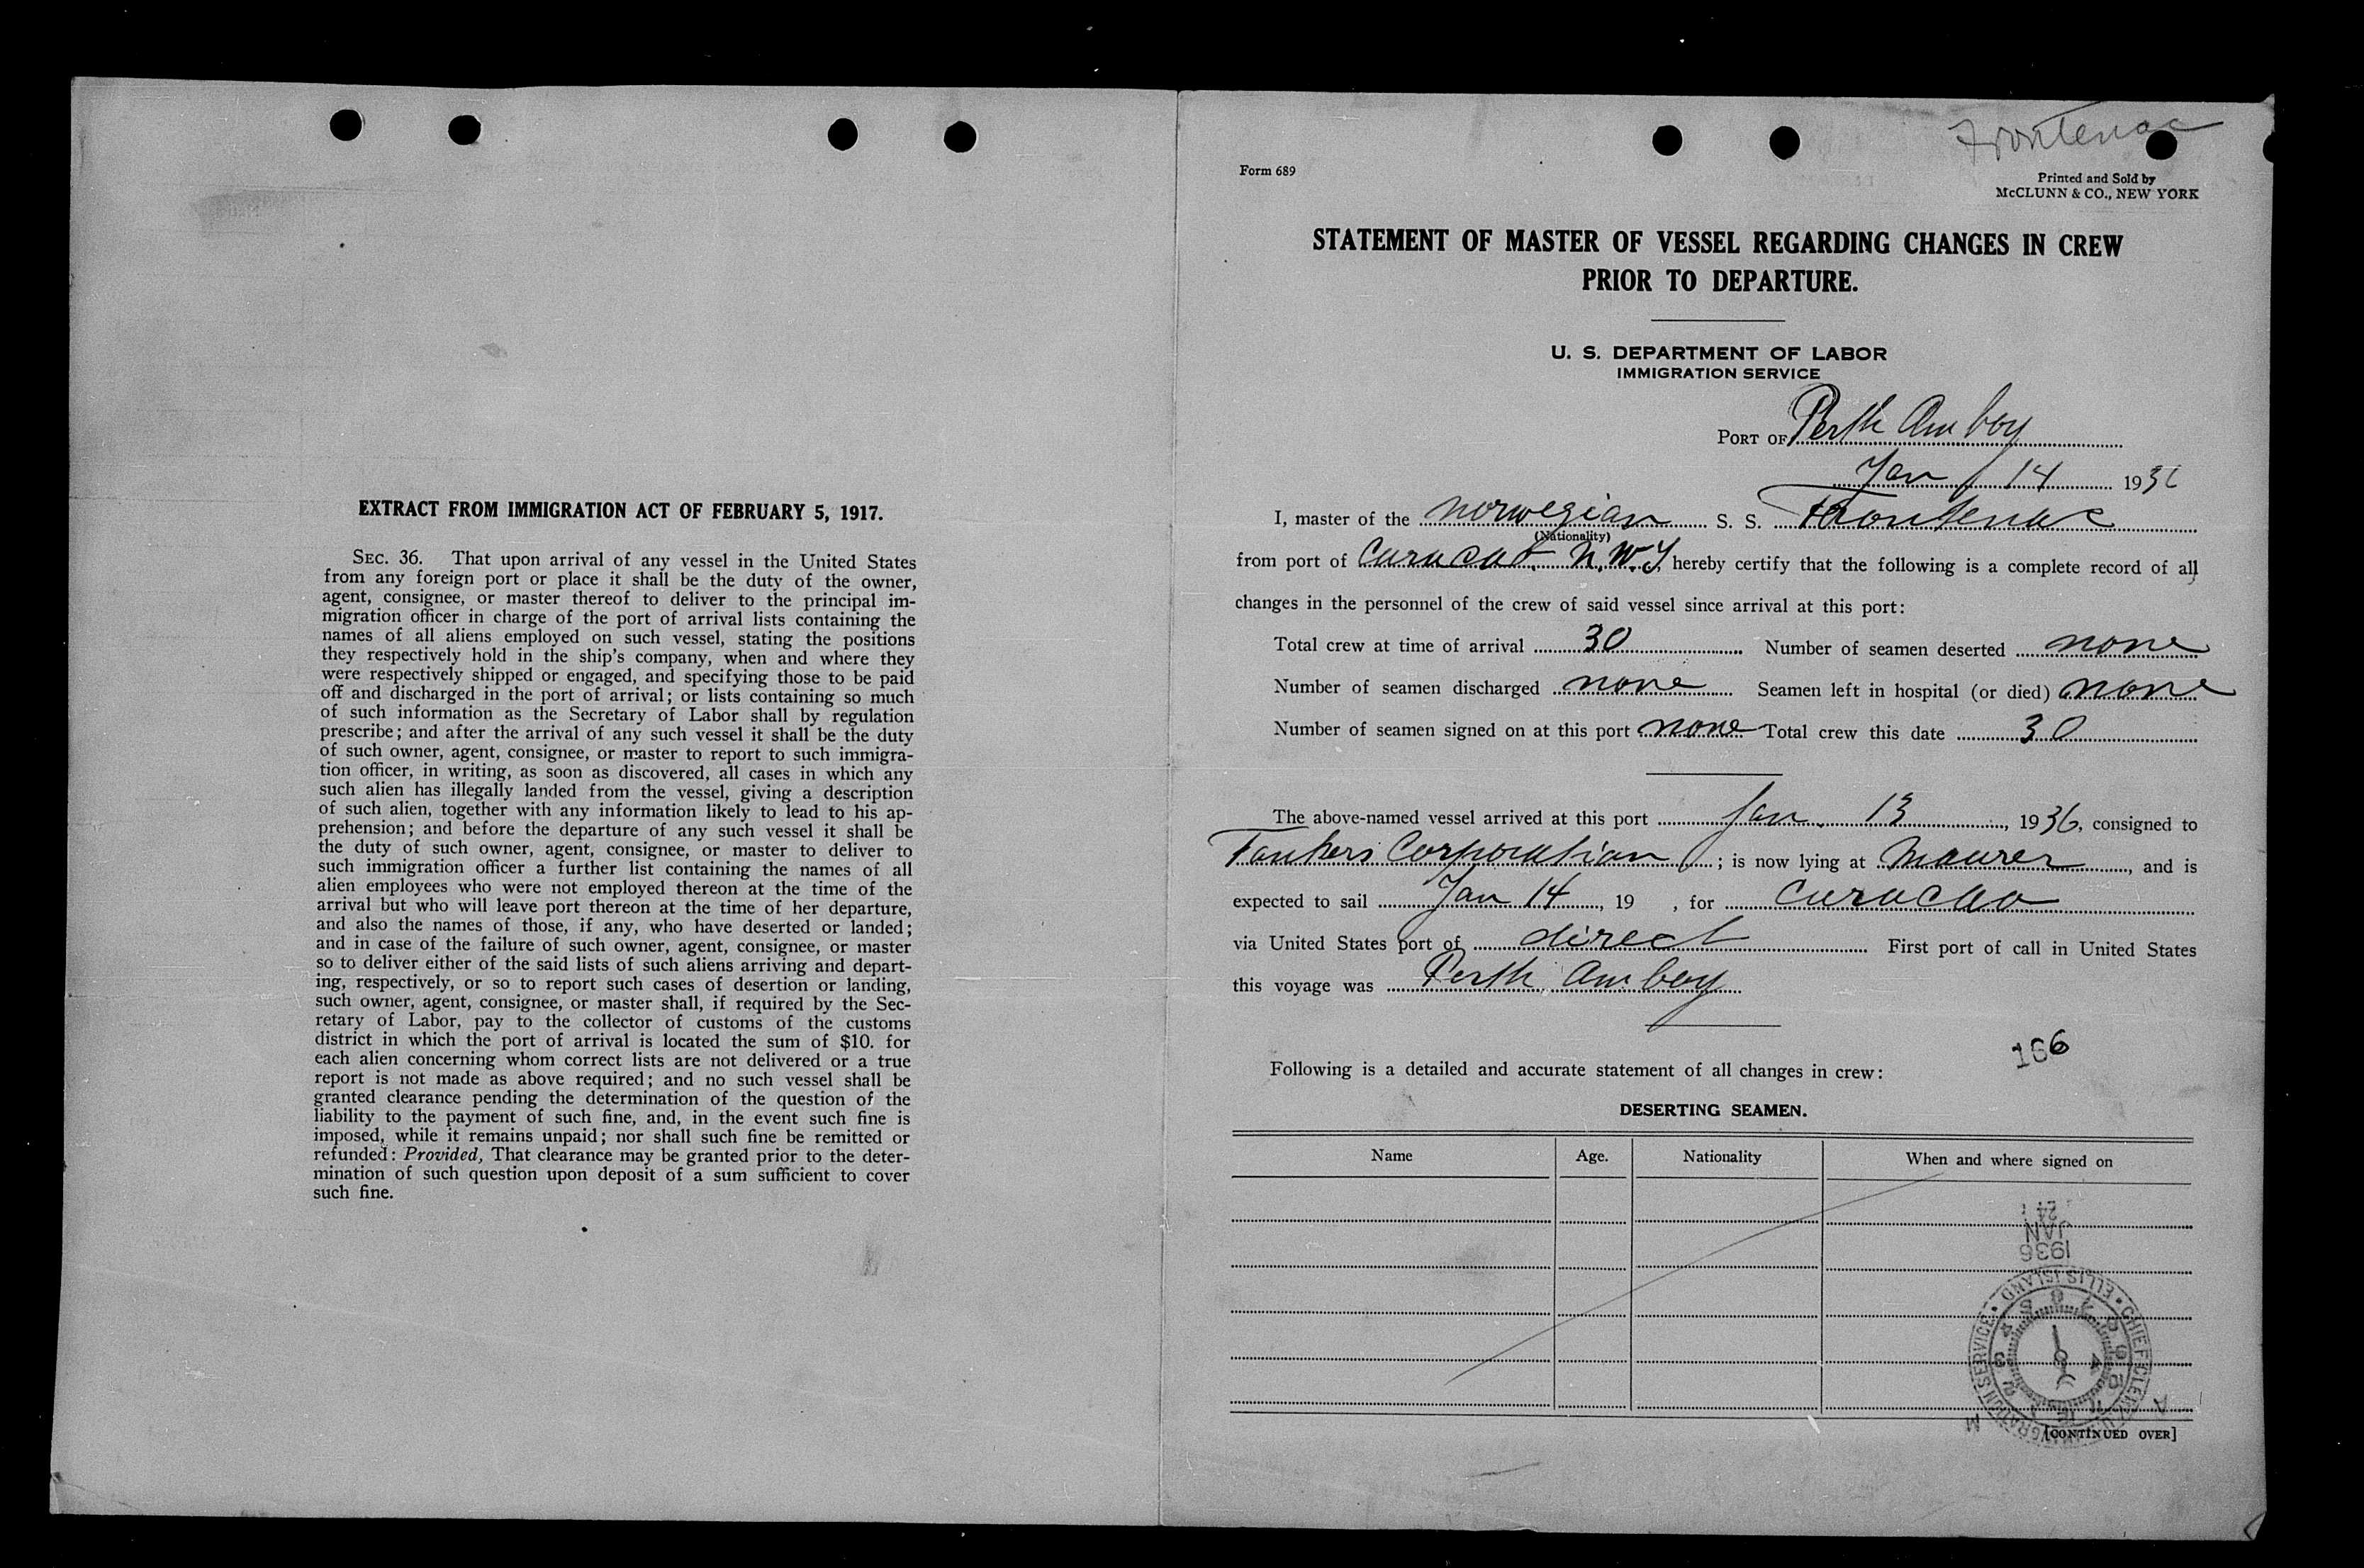 EXTRACT FROM IMMIGRATION ACT OF FEBRUARY 5, 1917.
SEC. 36. That upon arrival of any vessel in the United States
from any foreign port or place it shall be the duty of the owner,
agent, consignee, or master thereof to deliver to the principal im-
migration officer in charge of the port of arrival lists containing the
names of all aliens employed on such vessel, stating the positions
they respectively hold in the ship's company, when and where they
were respectively shipped or engaged, and specifying those to be paid
off and discharged in the port of arrival; or lists containing so much
of such information as the Secretary of Labor shall by regulation
prescribe; and after the arrival of any such vessel it shall be the duty
of such owner, agent, consignee, or master to report to such immigra-
tion officer, in writing, as soon as discovered, all cases in which any
such alien has illegally landed from the vessel, giving a description
of such alien, together with any information likely to lead to his ap-
prehension; and before the departure of any such vessel it shall be
the duty of such owner, agent, consignee, or master to deliver to
such immigration officer a further list containing the names of all
alien employees who were not employed thereon at the time of the
arrival but who will leave port thereon at the time of her departure,
and also the names of those, if any, who have deserted or landed;
and in case of the failure of such owner, agent, consignee, or master
so to deliver either of the said lists of such aliens arriving and depart-
ing, respectively, or so to report such cases of desertion or landing,
such owner, agent, consignee, or master shall, if required by the Sec-
retary of Labor, pay to the collector of customs of the customs
district in which the port of arrival is located the sum of $10. for
each alien concerning whom correct lists are not delivered or a true
report is not made as above required; and no such vessel shall be
granted clearance pending the determination of the question of the
liability to the payment of such fine, and, in the event such fine is
imposed, while it remains unpaid; nor shall such fine be remitted or
refunded: Provided, That clearance may be granted prior to the deter-
mination of such question upon deposit of a sum sufficient to cover
such fine.
Frontenac
Form 689
Printed and Sold by
McCLUNN & CO., NEW YORK
STATEMENT OF MASTER OF VESSEL REGARDING CHANGES IN CREW
PRIOR TO DEPARTURE.
U. S. DEPARTMENT OF LABOR
IMMIGRATION SERVICE
PORT OF Perth Amboy
Jan 14 1936
I, master of the Norwegian S. S. Frontenac
(Nationality)
from port of Curacao. N.W.I, hereby certify that the following is a complete record of all
changes in the personnel of the crew of said vessel since arrival at this port:
Total crew at time of arrival 30 Number of seamen deserted none
Number of seamen discharged none Seamen left in hospital (or died) none
Number of seamen signed on at this port none Total crew this date 30
The above-named vessel arrived at this port Jan. 13, 1936, consigned to
Tankers Corporation; is now lying at Maurer, and is
expected to sail Jan 14, 19 , for Curacao
via United States port of direct First port of call in United States
this voyage was Perth Amboy
166
Following is a detailed and accurate statement of all changes in crew:
DESERTING SEAMEN.
Name Age. Nationality When and where signed on
JAN
1936
CHIEF CLERK U.S. IMMIGRATION SERVICE • ELLIS ISLAND •
A M
[CONTINUED OVER]